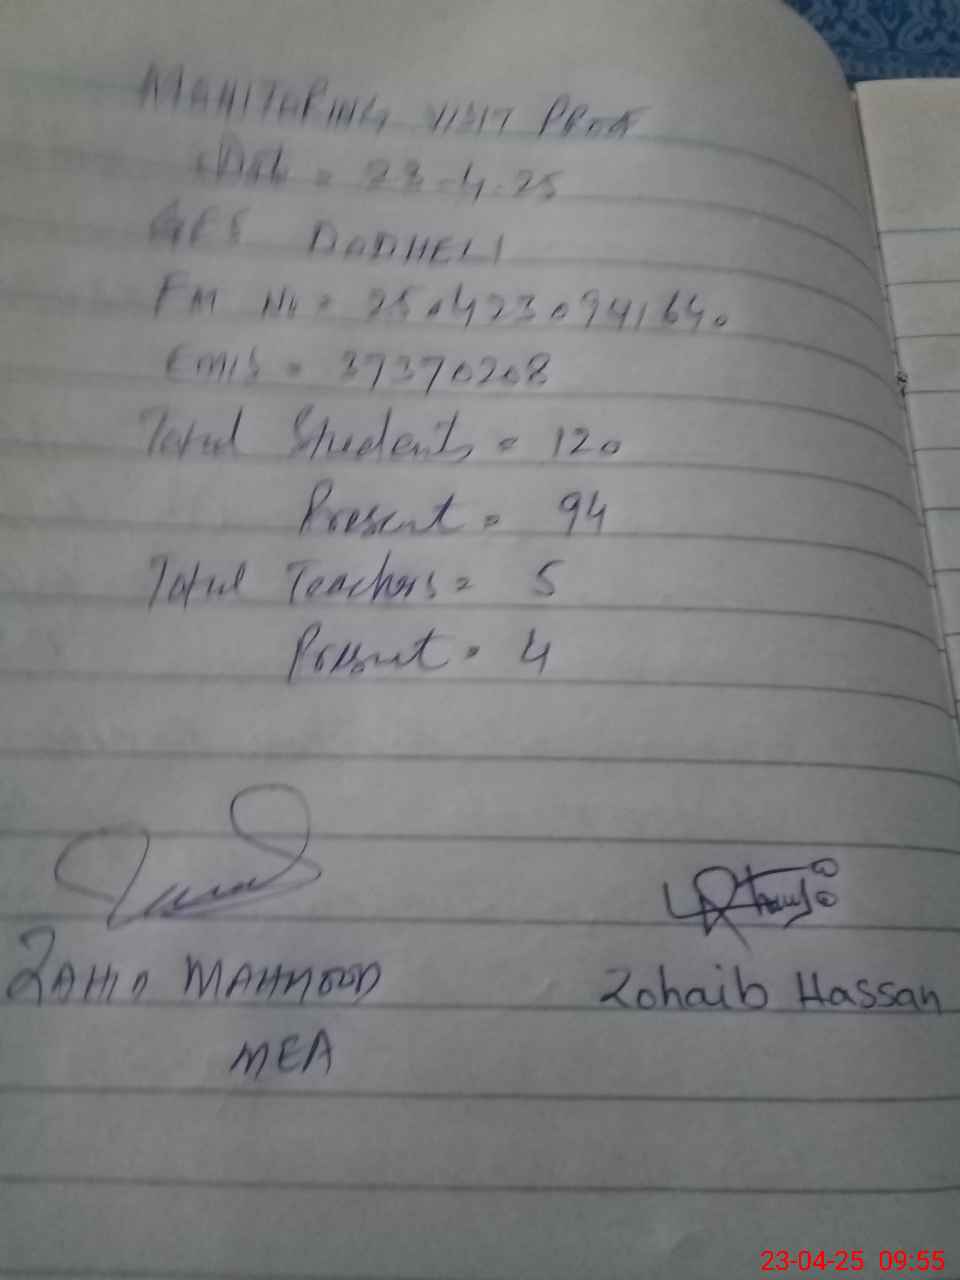 MONITORING VISIT PROOF
Date = 23-4-25
GES DODHELI
FM No = 2504230941640
EMIS = 37370208
Total Students = 120
Present = 94
Total Teachers = 5
Present = 4
ZAHID MAHMOOD
Zohaib Hassan
MEA
23-04-25 09:55